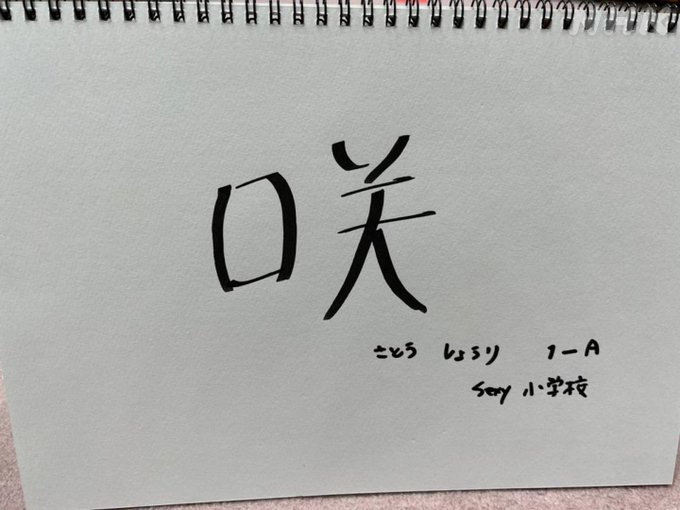 咲
さとう しょうり 1-A
Sexy 小学校